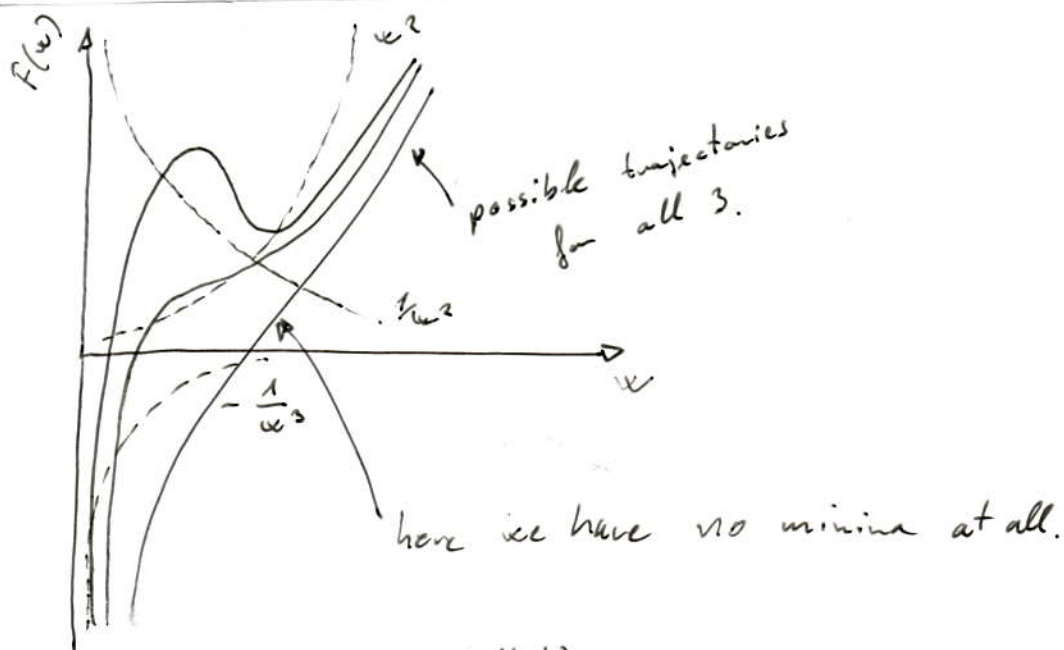 F(w)
w²
possible trajectories
for all 3.
1/w²
w
- 1/w³
here we have no minima at all.